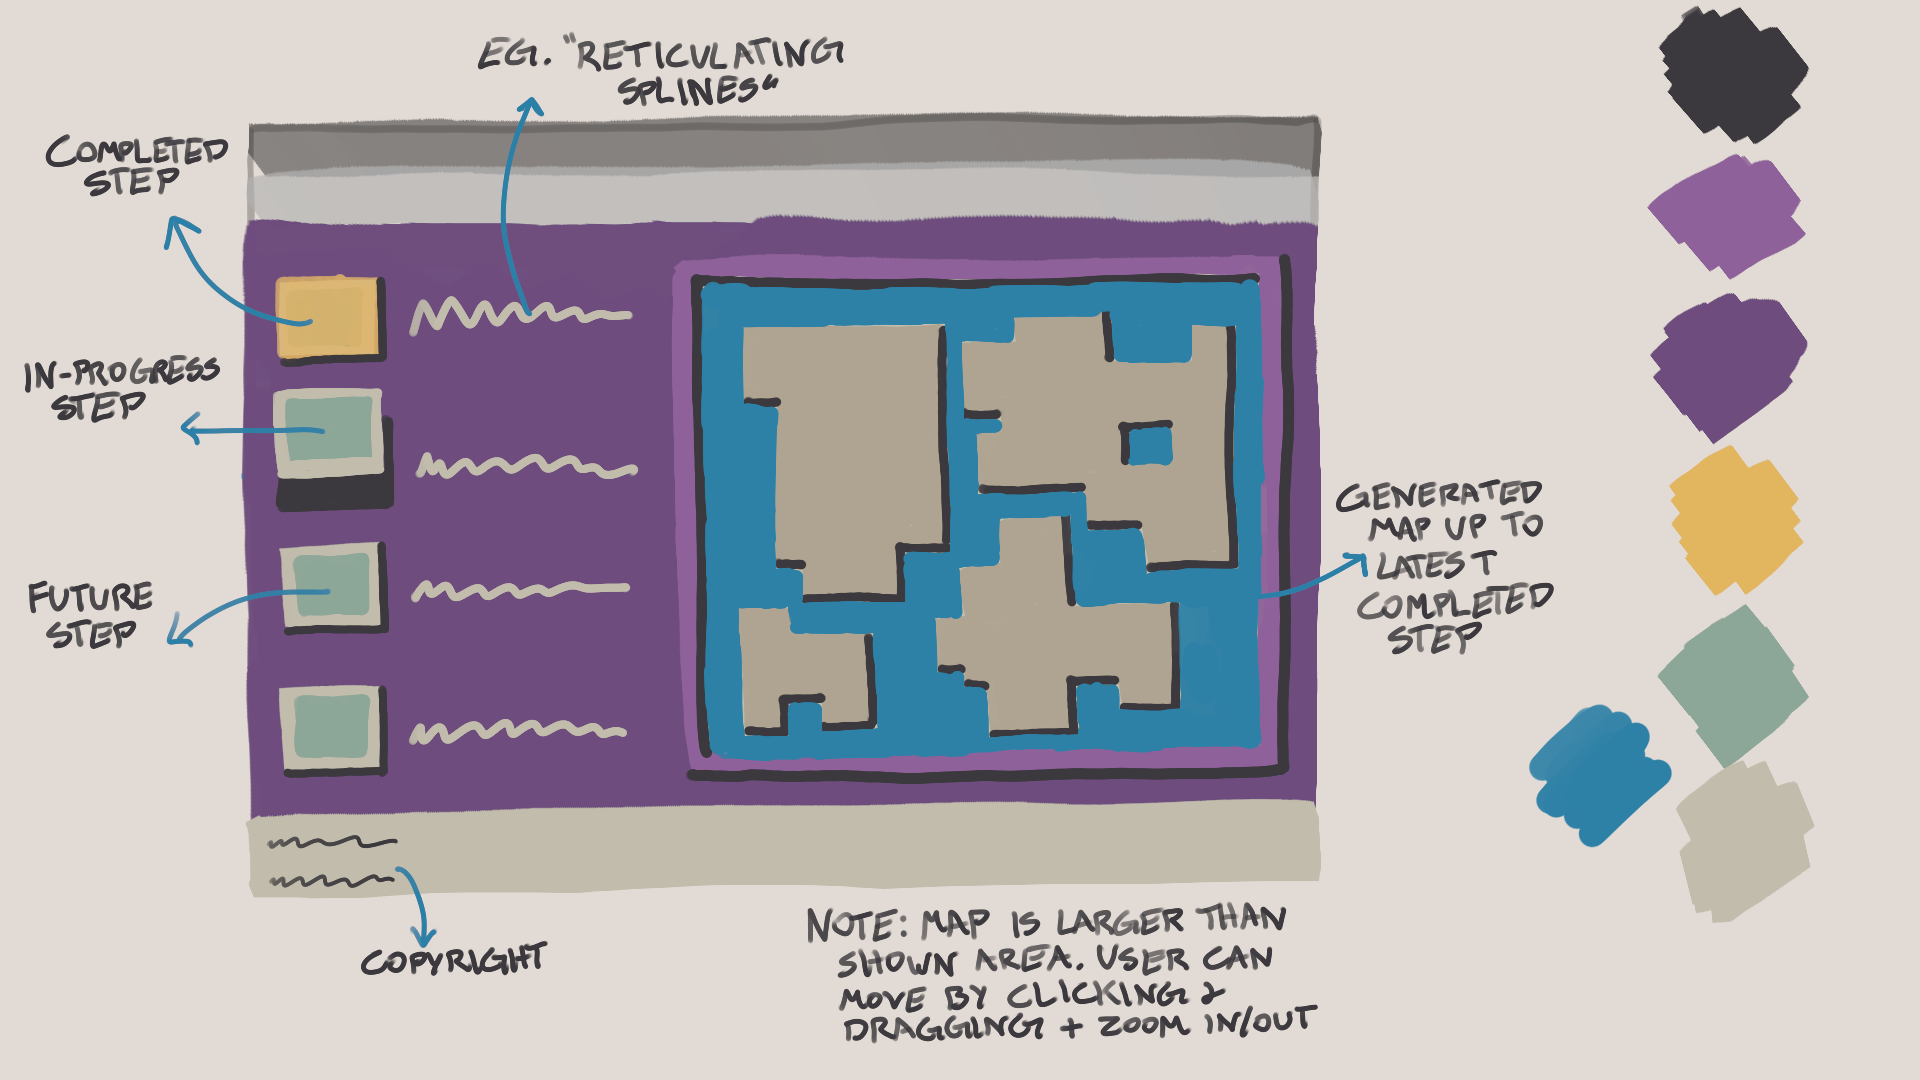 EG. "RETICULATING
SPLINES"
COMPLETED
STEP
IN-PROGRESS
STEP
FUTURE
STEP
GENERATED
MAP UP TO
LATEST
COMPLETED
STEP
COPYRIGHT
NOTE: MAP IS LARGER THAN
SHOWN AREA. USER CAN
MOVE BY CLICKING &
DRAGGING + ZOOM IN/OUT